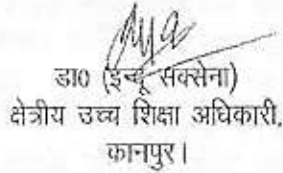 डा0 (इन्दू सक्सेना)
क्षेत्रीय उच्च शिक्षा अधिकारी,
कानपुर।